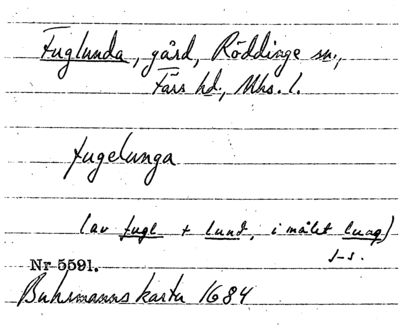 Fuglunda, gård, Röddinge sn.,
Färs hd., Mhs. l.
fugelunga
(av fugl + lund, i målet luag)
J-s.
Nr 5591.
Buhrmanns karta 1684